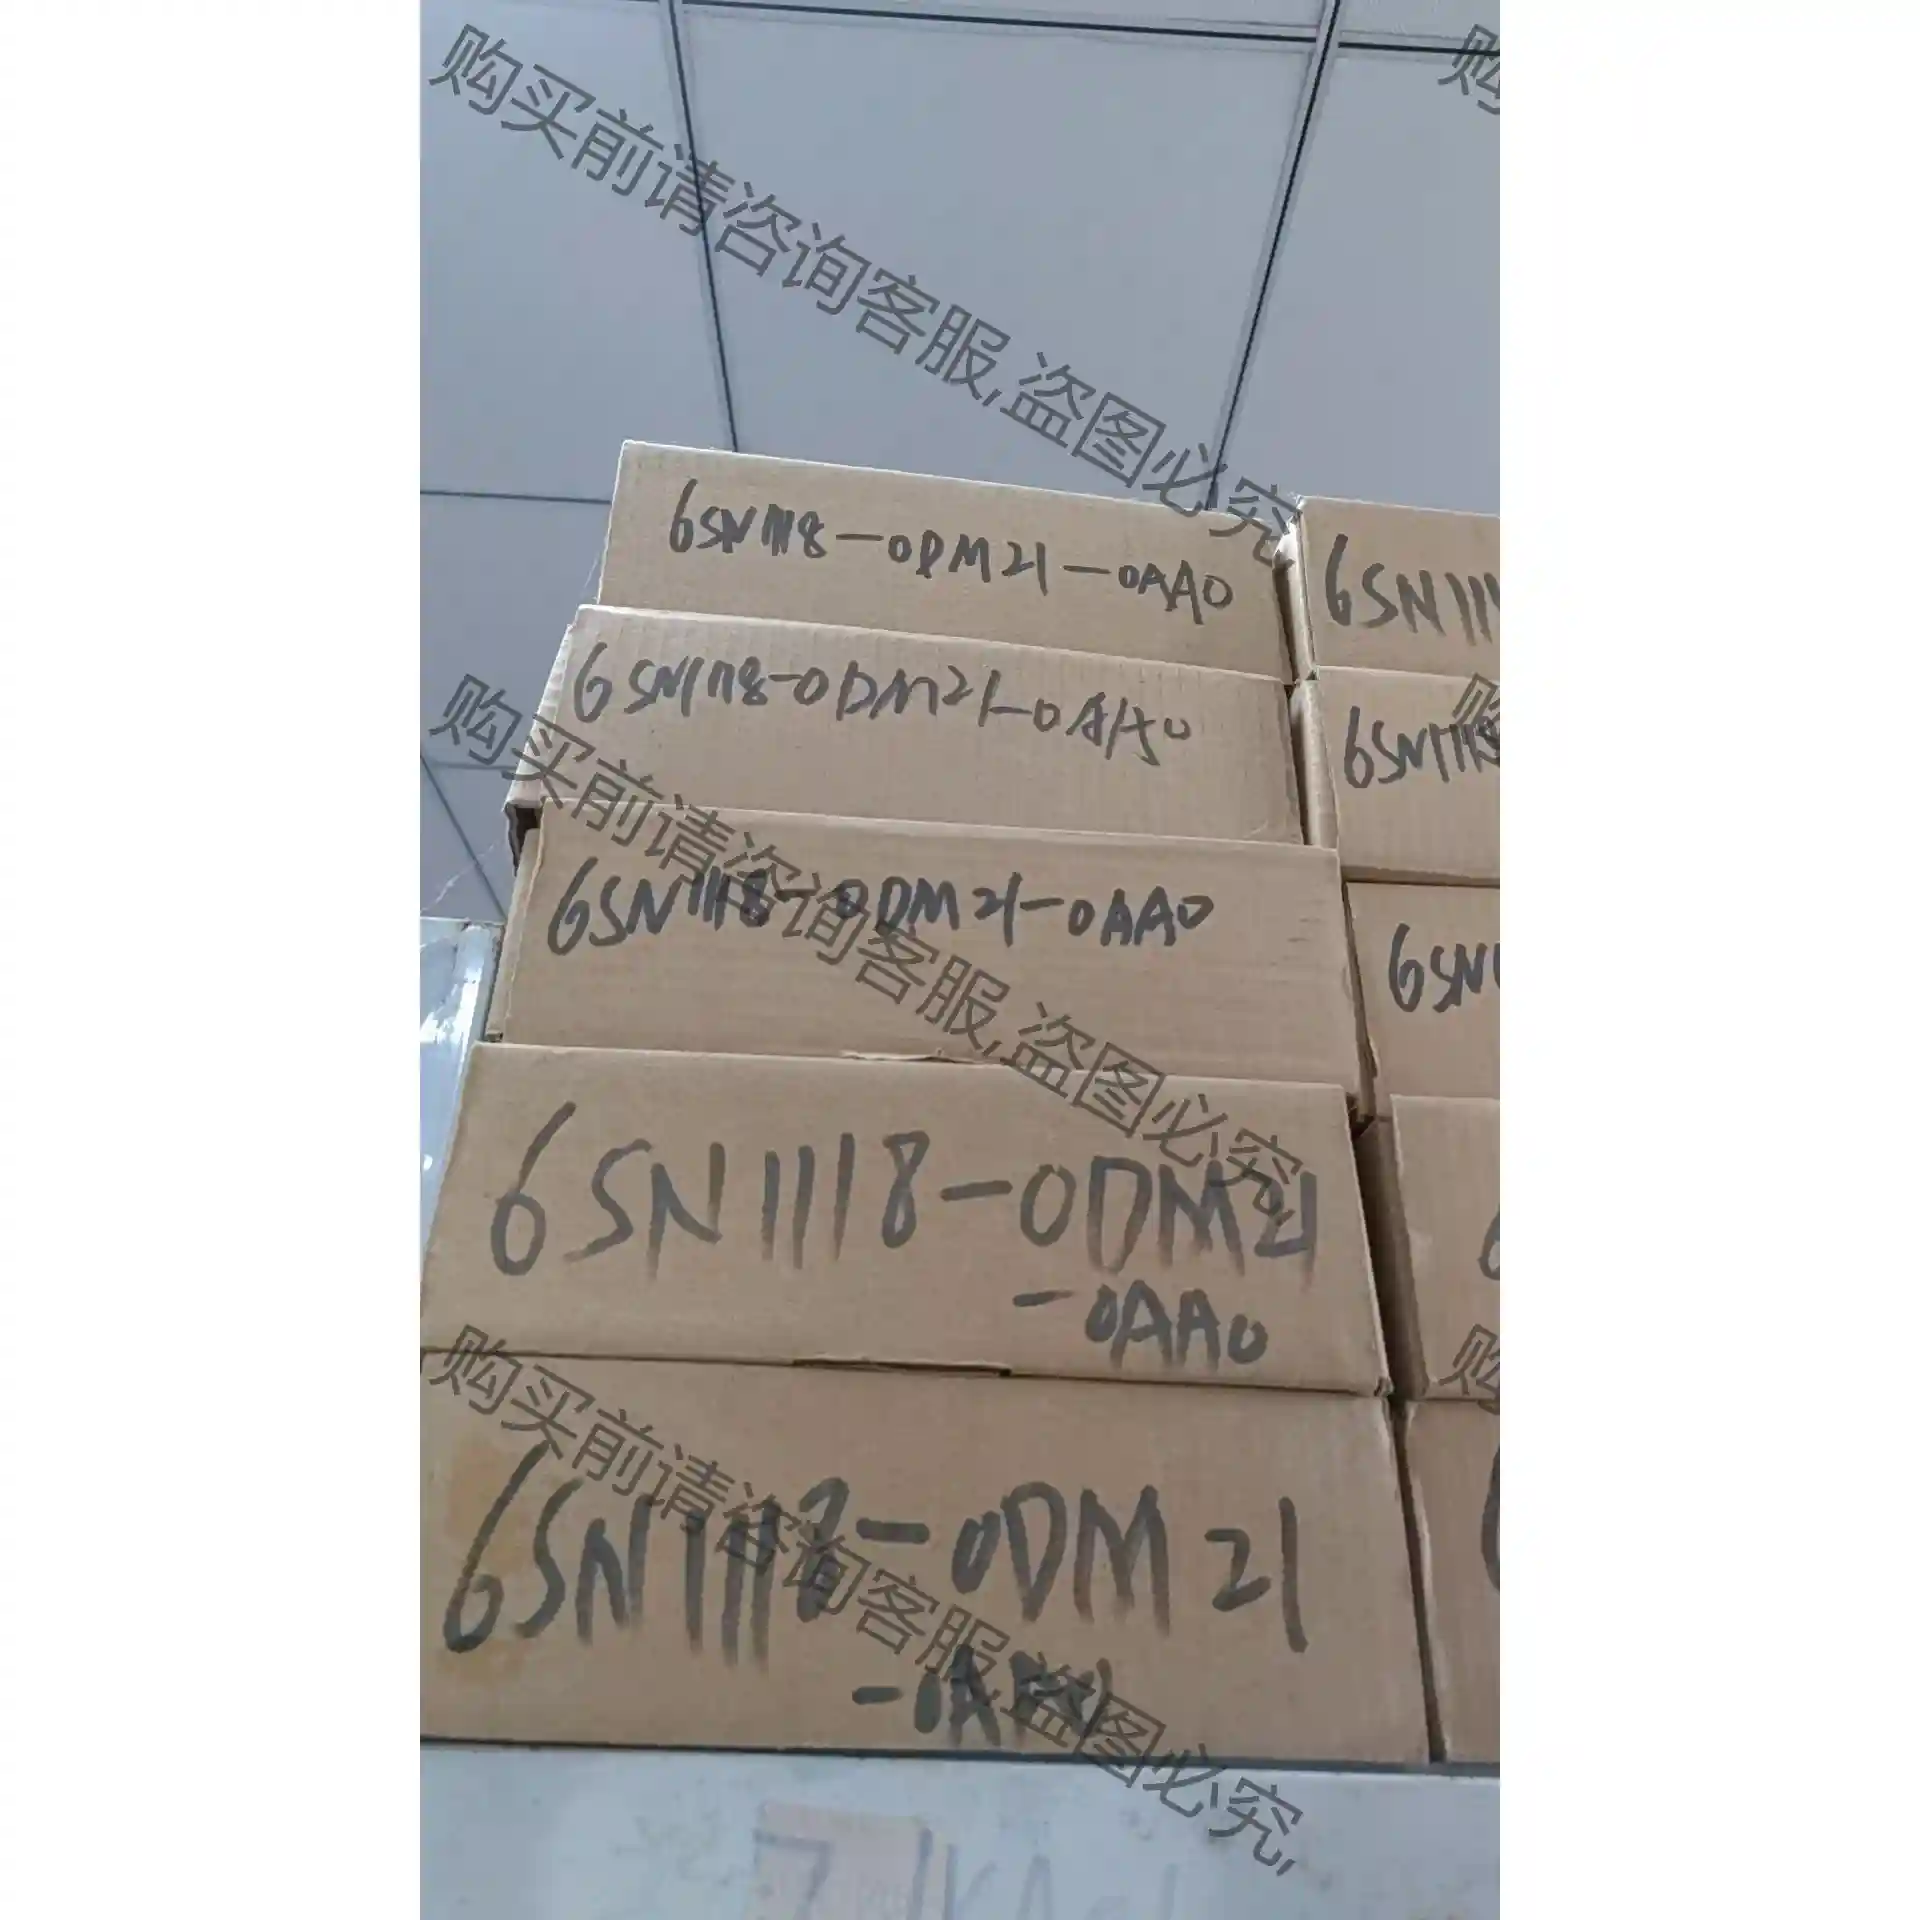 购买前请咨询客服,盗图必究,
6SN1118-0DM21-0AA0
6SN111
6SN1118-0DM21-0AA0
6SN1118
购买前请咨询客服,盗图必究,
6SN1118-0DM21-0AA0
6SN1
6SN1118-0DM21
-0AA0
购买前请咨询客服,盗图必究,
6SN1118-0DM21
-0AA